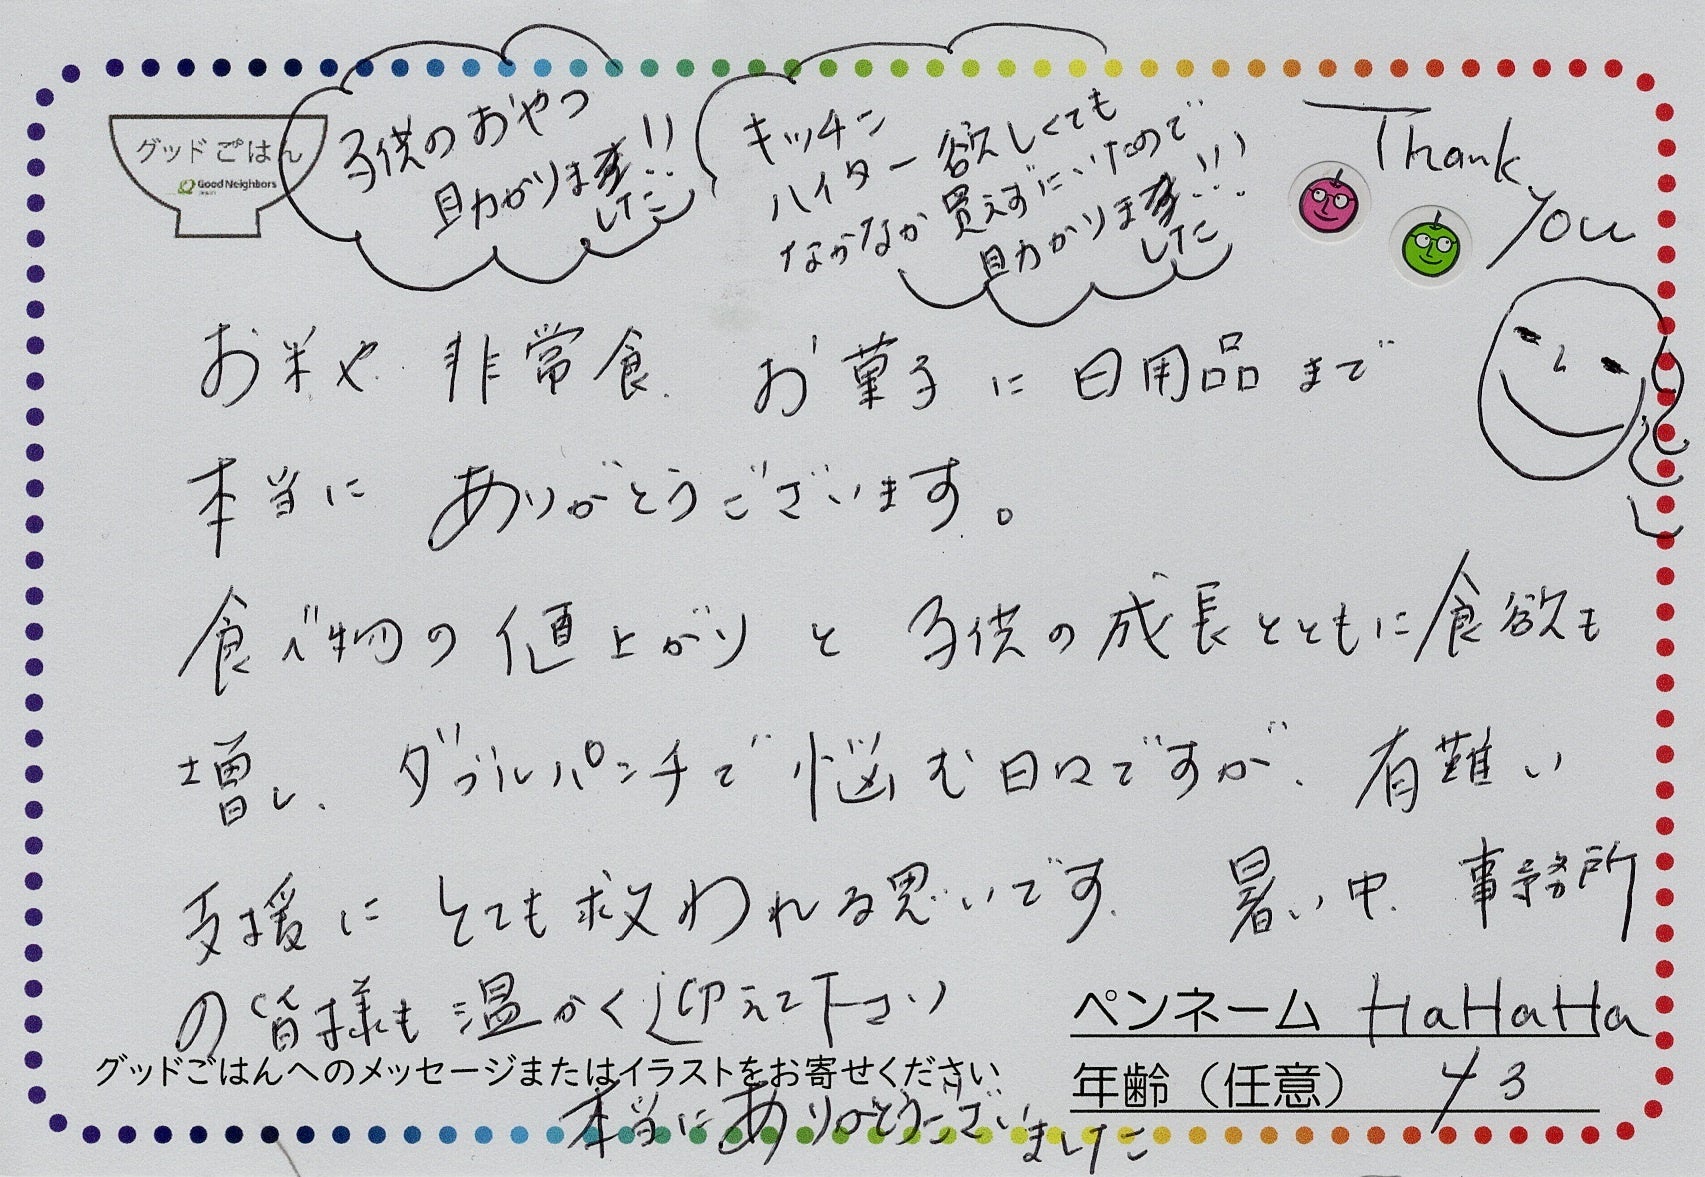 グッドごはん
GoodNeighbors
子供のおやつ
助かりました!!
キッチン
ハイター欲しくても
なかなか買えずにいたので
助かりました!!!
Thank
you
お米や 非常食、お菓子に日用品まで
本当に ありがとうございます。
食べ物の値上がりと子供の成長とともに食欲も
増し、ダブルパンチで悩む日々ですが、有難い
支援に とても救われる思いです。暑い中、事務所
の皆様も温かく迎えて下さり
グッドごはんへのメッセージまたはイラストをお寄せください
本当にありがとうございました
ペンネーム HaHaHa
年齢（任意） 43